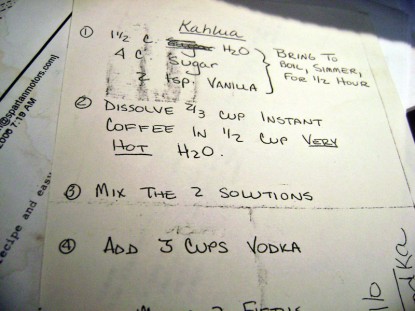 Kahlua
① 1½ C. H2O
4 C Sugar
2 tsp. VANILLA
BRING TO
BOIL, SIMMER,
FOR ½ HOUR
② DISSOLVE 2/3 CUP INSTANT
COFFEE IN ½ CUP VERY
HOT H2O.
③ MIX THE 2 SOLUTIONS
④ ADD 3 CUPS VODKA
@spartanmotors.com]
7:19 AM
recipe and easy